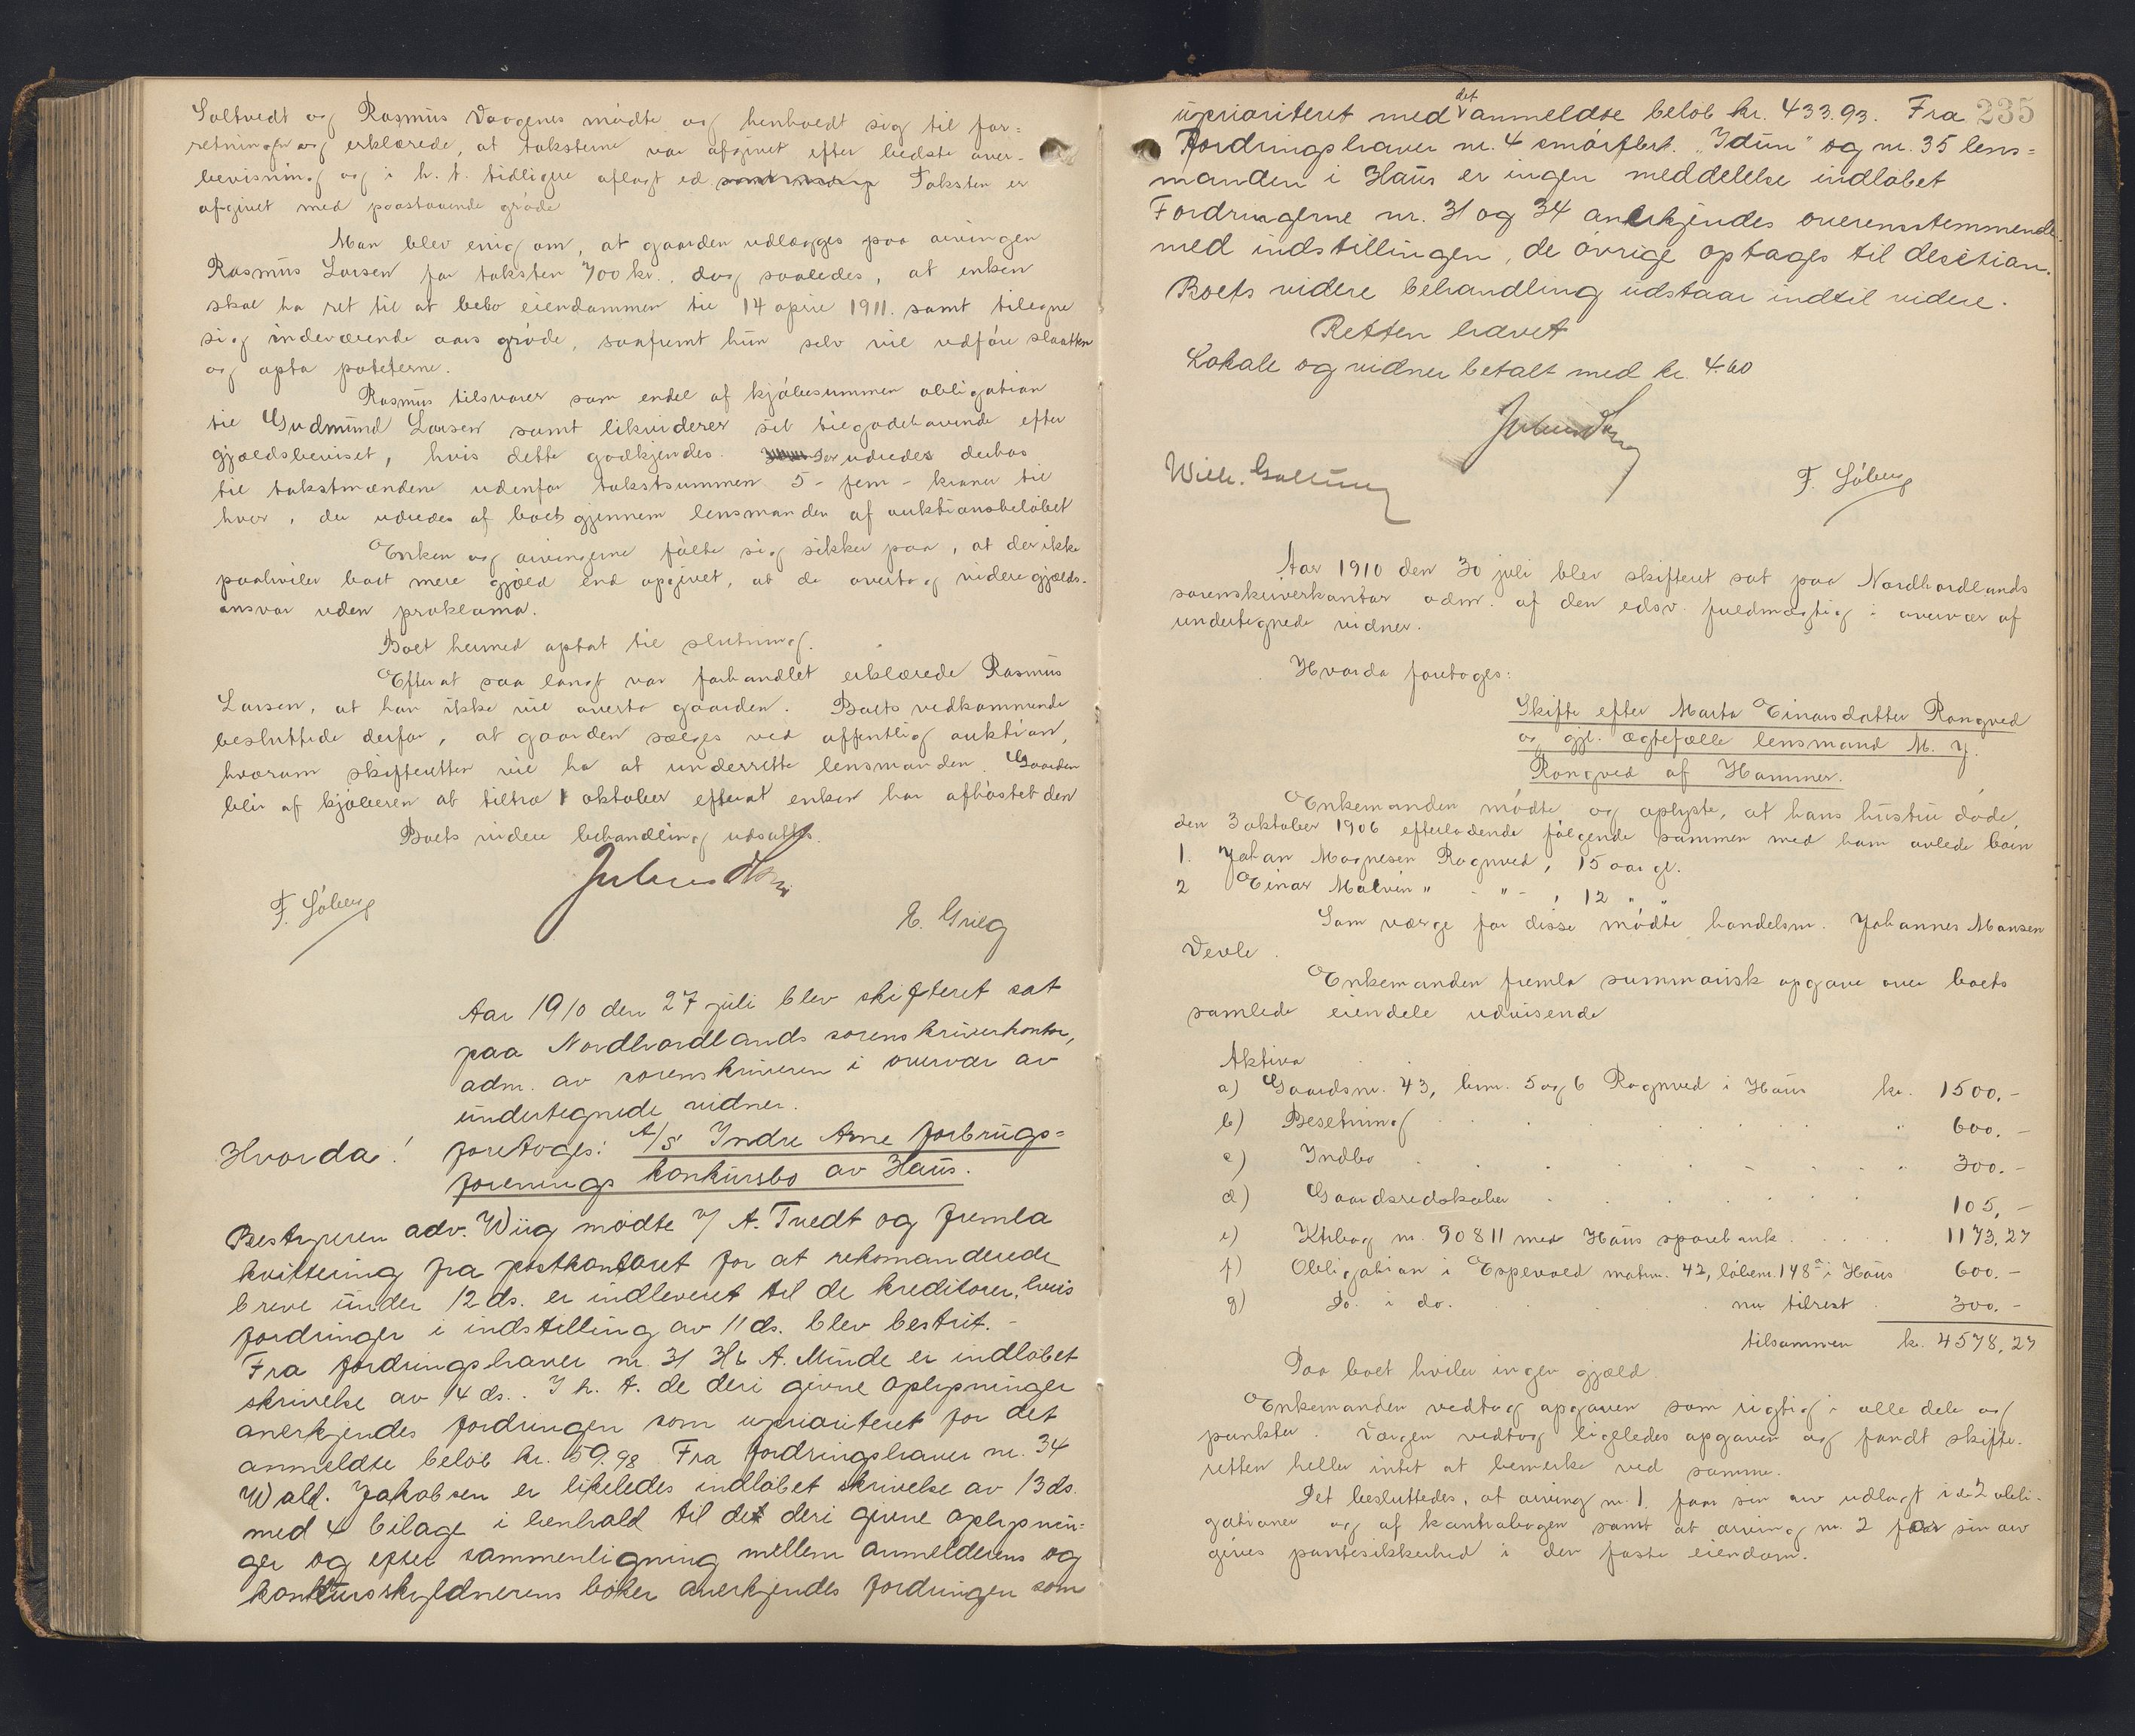 Saltvedt og Rasmus Vaagenes mødte og henholdt sig til for=
retningen og erklærede, at taksterne var afgivet efter bedste over-
bevisning og i h. t. tidligere aflagt ed. Taksten er
afgivet med paastaaende grøde
Man blev enig om, at gaarden udlægges paa arvingen
Rasmus Larsen for taksten 700 kr., dog saaledes, at enken
skal ha ret til at bebo eiendommen til 14 april 1911. samt tilegne
sig indeværende aars grøde, saafremt hun selv vil udføre slaatten
og opta poteterne.
Rasmus tilsvarer som endel af kjøbesummen obligation
til Gudmund Larsen samt likviderer sit tilgodehavende efter
gjældsbeviset, hvis dette godkjendes. Der udredes derhos
til takstmændene udenfor takstsummen 5 - fem - kroner til
hver, der udredes af boet gjennem lensmanden af auktionsbeløbet
Enken og arvingerne følte sig sikker paa, at der ikke
paahviler boet mere gjæld end opgivet, at de overtog videre gjælds-
ansvar uden proklama.
Boet hermed optat til slutning.
Efterat saa langt var forhandlet erklærede Rasmus
Larsen, at han ikke vil overta gaarden. Boets vedkommende
besluttede derfor, at gaarden sælges ved offentlig auktion,
hvorom skifteretten vil ha at underrette lensmanden. Gaarden
blir af kjøberen at tiltræ 1 oktober efterat enken har afhøstet den
Boets videre behandling udsattes.
F. Søberg
E. Grieg
Aar 1910 den 27 juli blev skifteret sat
paa Nordhordlands sorenskriverkontor,
adm. av sorenskriveren i overvær av
undertegnede vidner.
Hvorda! foretoges: A/S Indre Arne forbrugs=
forenings konkursbo av Haus.
Bestyreren adv. Wiig mødte v/ A. Tvedt og fremla
kvittering fra postkontoret for at rekomanderede
breve under 12 ds. er indleveret til de kreditorer, hvis
fordringer i indstilling av 11 ds. blev bestrit. -
Fra fordringshaver nr. 31 Hr A. Minde er indløbet
skrivelse av 14 ds.. I h. t. de deri givne oplysninger
anerkjendes fordringen som uprioriteret for det
anmeldte beløb kr. 59.98 Fra fordringshaver nr. 34
Wald. Jakobsen er likeledes indløbet skrivelse av 13 ds.
med 4 bilage i henhold til det deri givne oplysnin=
ger og efter sammenligning mellem anmelderens og
konkursskyldnerens bøker anerkjendes fordringen som
235
uprioriteret med det anmeldte beløb kr. 433.93. Fra
Fordringshaver nr. 4 smørfbrt. "Idun" og nr. 35 lens=
manden i Haus er ingen meddelelse indløbet
Fordringerne nr. 31 og 34 anerkjendes overensstemmende
med indstillingen, de øvrige optages til desision.
Boets videre behandling udstaar indtil videre.
Retten hævet
Lokale og vidner betalt med kr. 4.60
F. Søberg
Aar 1910 den 30 juli blev skifteret sat paa Nordhordlands
sorenskriverkontor adm. af den edsv. fuldmægtig i overvær af
undertegnede vidner.
Hvorda foretoges:
Skifte efter Marta Einarsdatter Rongved
og gjl. ægtefælle lensmand M. J.
Rongved af Hammer.
Enkemanden mødte og oplyste, at hans hustru døde
den 3 oktober 1906 efterladende følgende sammen med ham avlede børn
1. Johan Magnesen Rognved, 15 aar gl.
2 Einar Malvin " - " - , 12 " "
Som værge for disse mødte handelsm. Johannes Monsen
Vevle.
Enkemanden fremla summarisk opgave over boets
samlede eiendele udvisende
Aktiva
a) Gaardsnr. 43, brnr. 5 og 6 Rognved i Haus kr. 1500.-
b) Besetning " 600.-
c) Indbo " 300.-
d) Gaardsredskaber 105,-
e) Ktrbog nr. 90811 med Haus sparebank 1173,27
f) Obligation i Espevold matnr. 42, løbenr. 148a i Haus 600.-
g) Do. i do. nu tilrest 300.-
tilsammen kr. 4578,27
Paa boet hviler ingen gjæld
Enkemanden vedtog opgaven som rigtig i alle dele og
punkter. Værgen vedtog ligeledes opgaven og fandt skifte-
retten heller intet at bemerke ved samme.
Det besluttedes, at arving nr. 1. faar sin arv udlagt i de 2 obli-
gationer og af kontrabogen samt at arving nr. 2 for sin arv
gives pantesikkerhed i den faste eiendom.